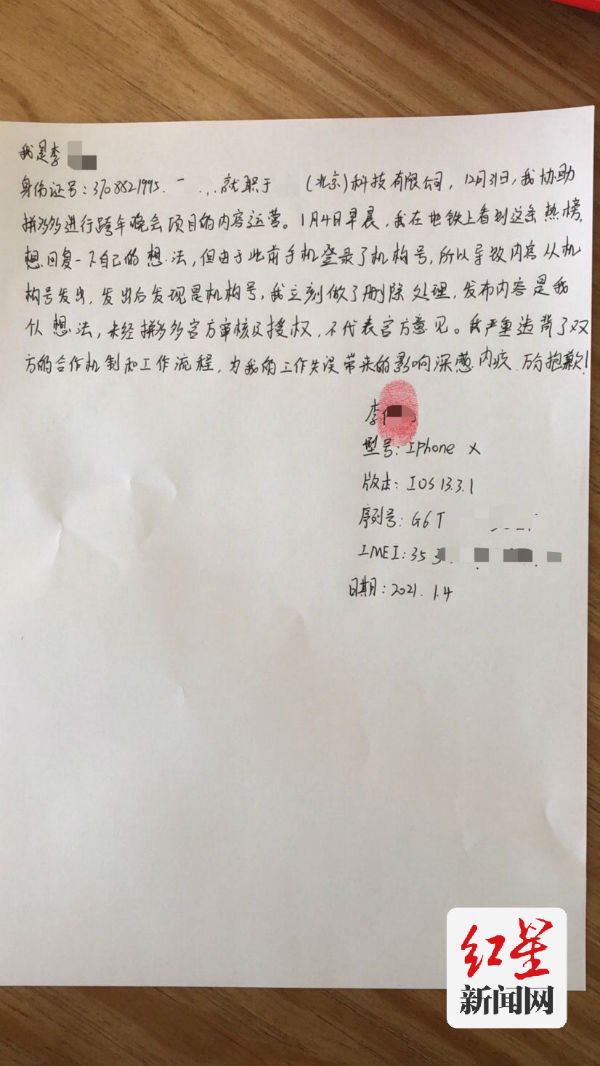 我是李
身份证号:3708821995. ...就职于 (北京)科技有限公司,12月31日,我协助
拼多多进行跨年晚会项目的内容运营。1月4日早晨,我在地铁上看到这条热榜,
想回复一下自己的想法,但由于此前手机登录了机构号,所以导致内容从机
构号发出,发出后发现是机构号,我立刻做了删除处理,发布内容是我
个人想法,未经拼多多官方审核及授权,不代表官方意见。我严重违背了双
方的合作机制和工作流程,为我的工作失误带来的影响深感内疚,万分抱歉!
李
型号:IPhone X
版本:IOS 13.3.1
序列号:G6T
IMEI:35
日期:2021.1.4
红星
新闻网